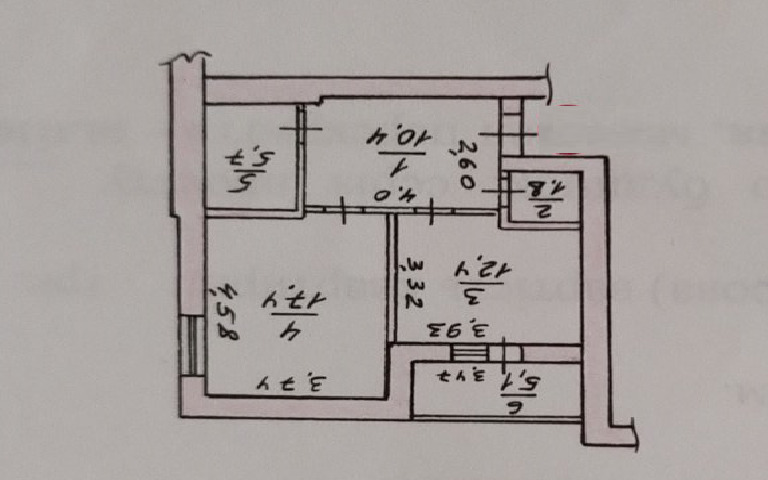 6
5,1
3,47
3,74
3,93
3
12,4
3,32
4
17,4
4,58
2
1,8
4,0
2,60
1
10,4
5
5,7